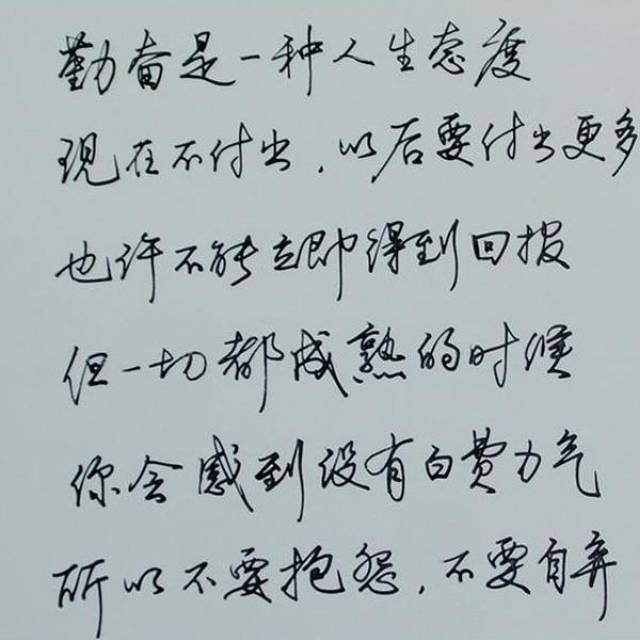 勤奋是一种人生态度
现在不付出，以后要付出更多
也许不能立即得到回报
但一切都成熟的时候
你会感到没有白费力气
所以不要抱怨，不要自弃